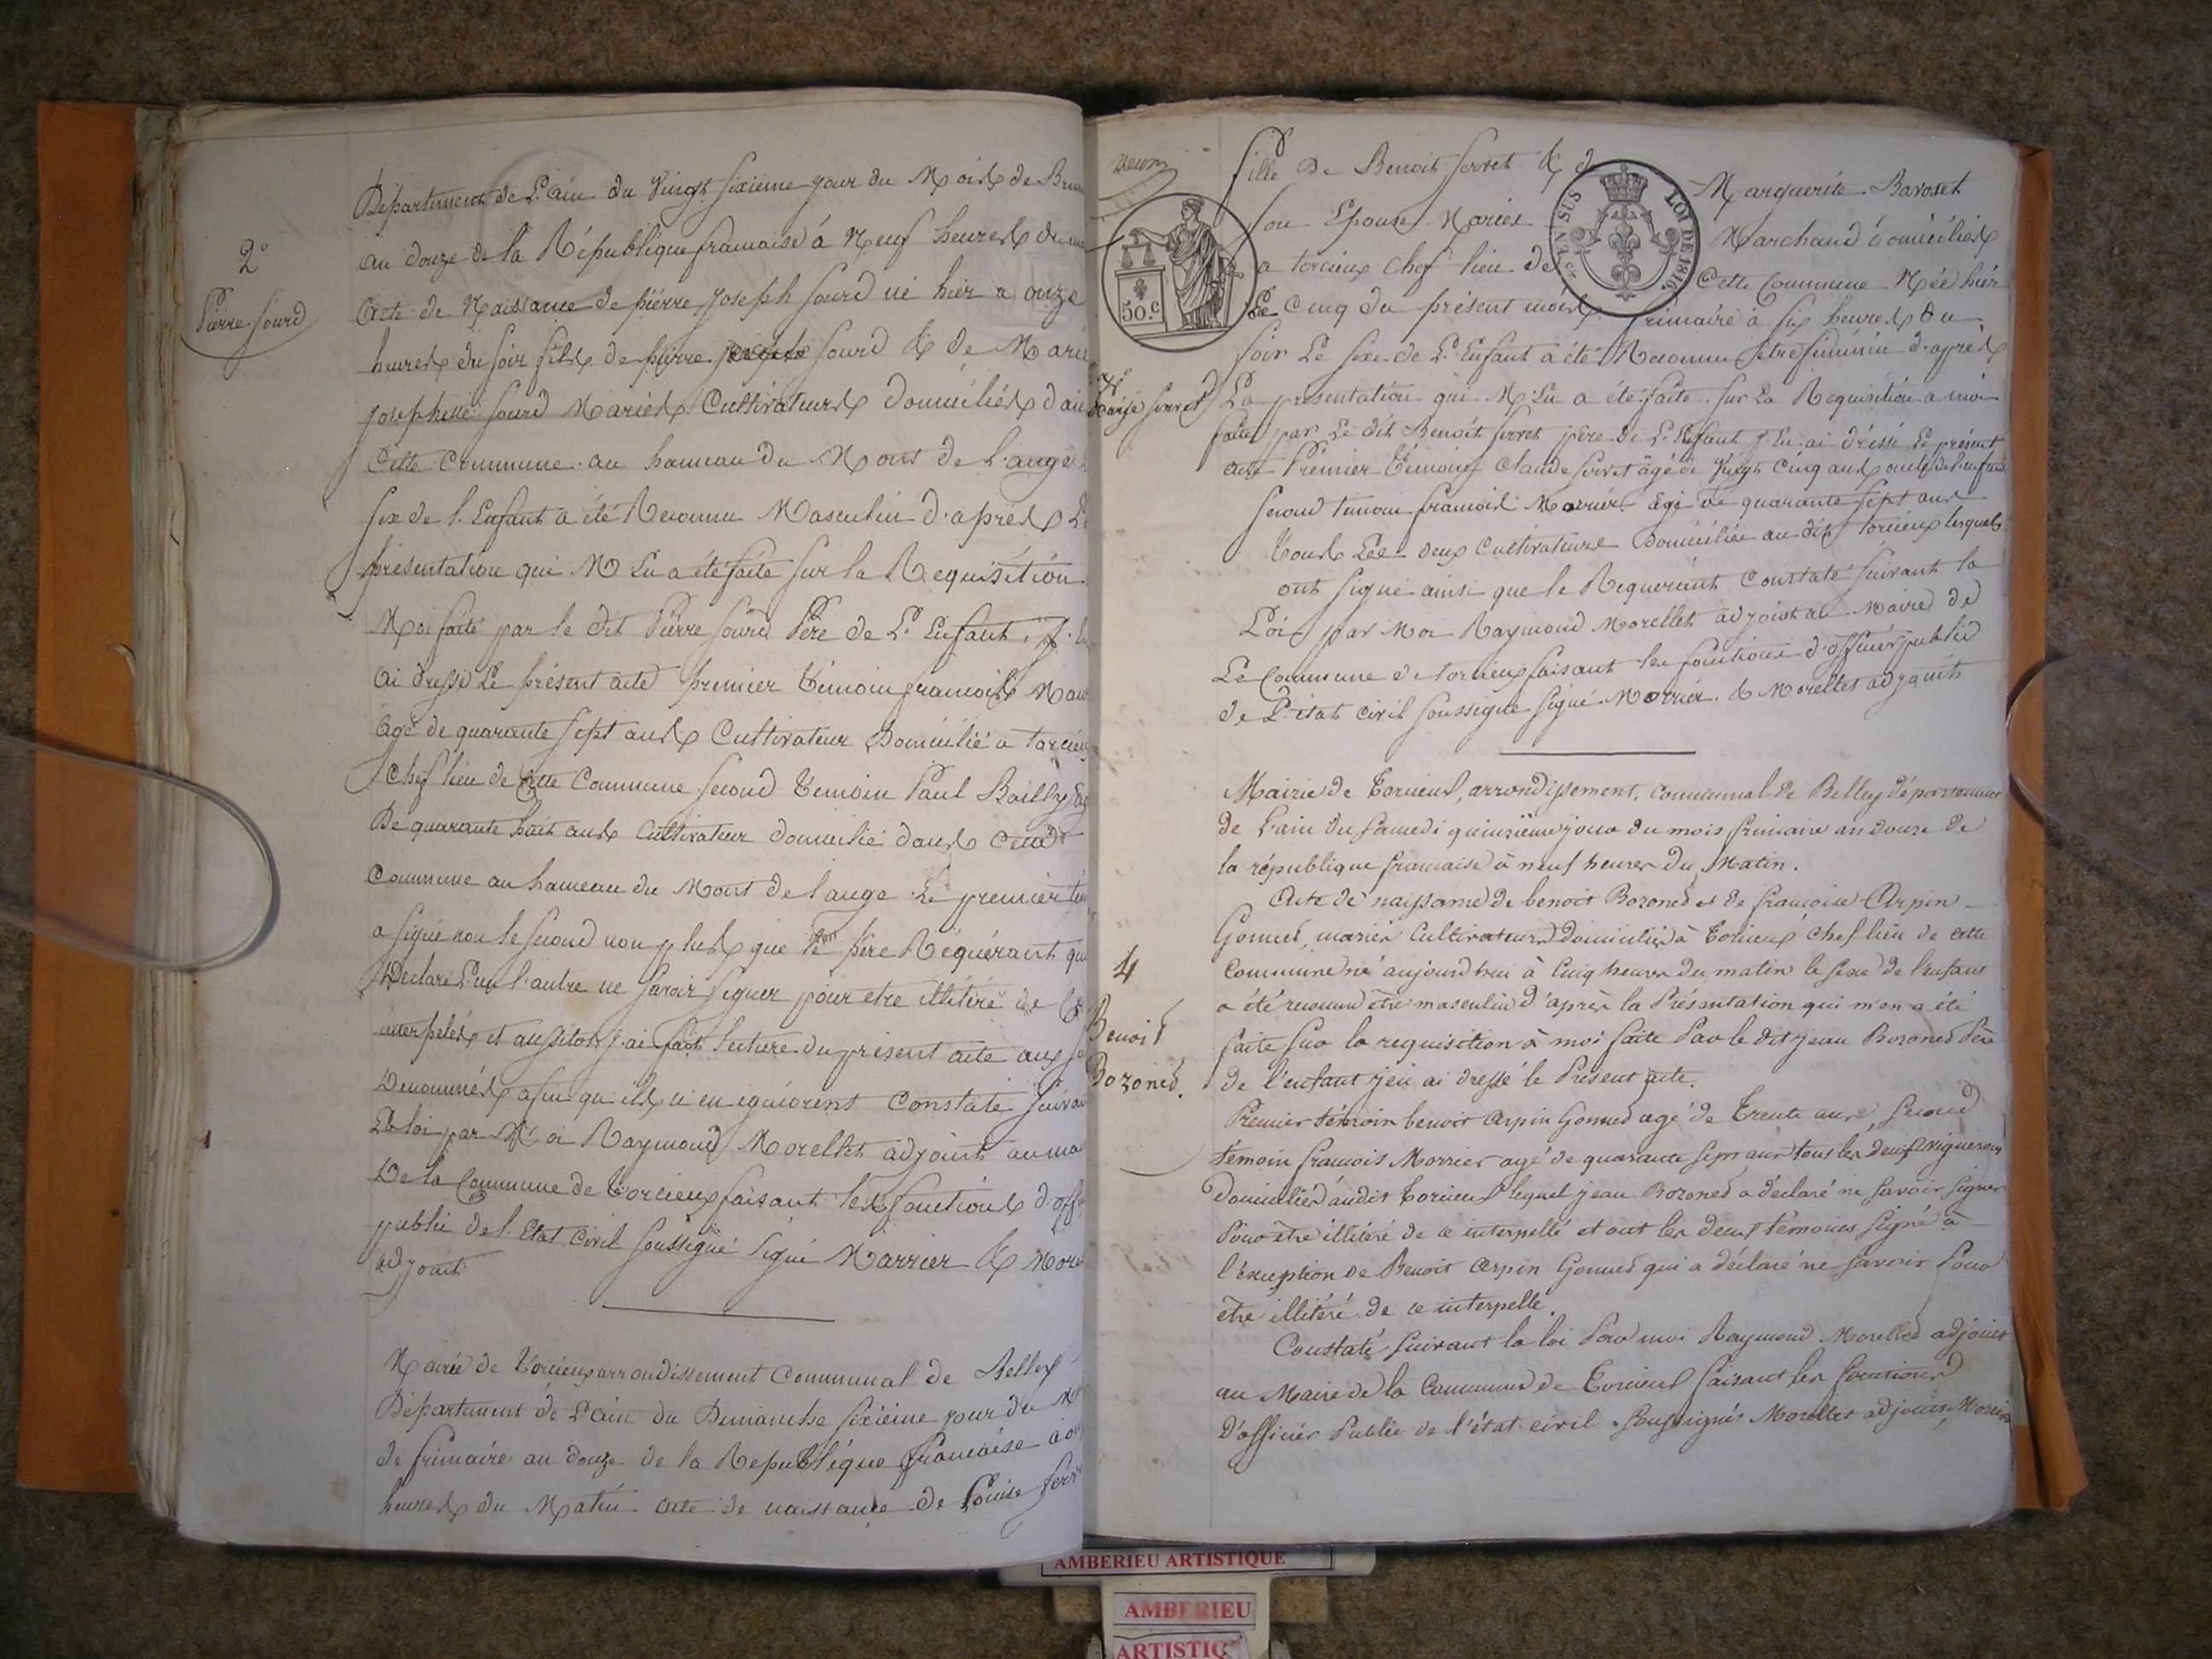 2°
Pierre Sourd
Département de L'ain du Vingt sixieme jour du Mois de Bru
an douze de la République francaise à Neuf heures du
Acte de Naissance de pierre Joseph Sourd né hier a onze
heures du soir fils de pierre Sourd & de Marie
josephette Sourd Mariés Cultivateurs domiciliés dan
Cette Commune au hameau du Mont de l'ange
sex de l'Enfant a été Reconnu Masculin d'après La
présentation qui M'en a été faite sur la Requisition
Moi faite par le dit Pierre Sourd Père de L'Enfant j'en
ai dressé Le présent acte premier témoin francois Mar
âgé de quarante sept ans Cultivateur Domicilié a torcieu
Chef lieu de Cette Commune second témoin Paul Bailly ag
De quarante huit ans Cultivateur domicilié dans cette
Commune au hameau du Mont de l'ange Le premier té
a signé non le second non plus que le Père Réquérant qu
Déclaré L'un l'autre ne savoir signer pour etre illitéré de ce
interpelés et aussitot j'ai fait lecture du présent acte aux su
Denommés afin qu'ils n'en ignorent Constaté suivan
La loi par Moi Raymond Morellet adjoint au ma
De la Commune de torcieux faisant les fonctions d'offi
public de l'Etat Civil soussigné signé Marrier & More
adjoint
Mairie de Torcieux arrondissement Communal de Belley
Département de L'ain du Dimanche sixième jour du M
de frimaire an douze de la Republique francaise à
heures du Matin acte de naissance de Louise Serr
fille De Benoit Serret & d Marguerite Baroset
son Epouse Mariés Marchand domiciliés
a torcieux chef lieu de Cette Commune Née hier
Le cinq du présent mois frimaire à six heures du
50.C
EN SUS LOI DE 1816.
soir Le sexe de L'Enfant a été Reconnu être féminin d'après
3°
Louise Serret
La présentation qui M'en a été faite sur La Requisition a moi
faite par Le dit Benoit Serret père de L'Enfant j'En ai dréssé Le présent
acte Prémier témoin Claude Serret âgé de Vingt Cinq ans oncle de l'enfant
second temoin francois Morrier âgé de quarante sept ans
tous Les deux Cultivateurs Domiciliés au dit torcieux lesquels
ont signé ainsi que le Requerant Constaté suivant la
Loi par Moi Raymond Morellet adjoint au Maire de
La Commune de torcieux faisant les fonctions d'officier public
de L'état Civil soussigné signé Morrier & Morellet adjoint
Mairie de Torcieux, arrondissement, communal de Belley département
de L'ain du samedi quinzième jour du mois frimaire an douze de
la république francaise à neuf heures du Matin.
Acte de naissance de benoit Bozoned et de francoise Arpin
Gonned, mariés Cultivateurs domiciliés à Torcieux chef lieu de cette
4
Benoit
Bozoned.
commune né aujourd'hui à Cinq heures du matin le sexe de l'enfant
a été reconnu être masculin d'après la Présentation qui m'en a été
faite sur la requisition à moi faite Par le dit jean Bozoned Père
de l'enfant j'en ai dressé le Présent acte.
Premier témoin benoit Arpin Gonned agé de trente ans, second
témoin francois Morrier agé de quarante sept ans tous les deux vignerons
Domiciliés audit Torcieux lequel jean Bozoned a déclaré ne savoir signer
Pour être illitéré de ce interpellé et ont les deux témoins signé à
l'exception de Benoit Arpin Gonned qui a déclaré ne savoir Pour
etre illitéré de ce interpellé.
Constaté suivant la loi Par moi Raymond Morelled adjoint
au Maire de la Commune de Torcieux faisant les fonctions
D'officier Public de l'état civil. Soussignés Morellet adjoint, Morrier
AMBERIEU ARTISTIQUE
AMBERIEU
ARTISTIQ